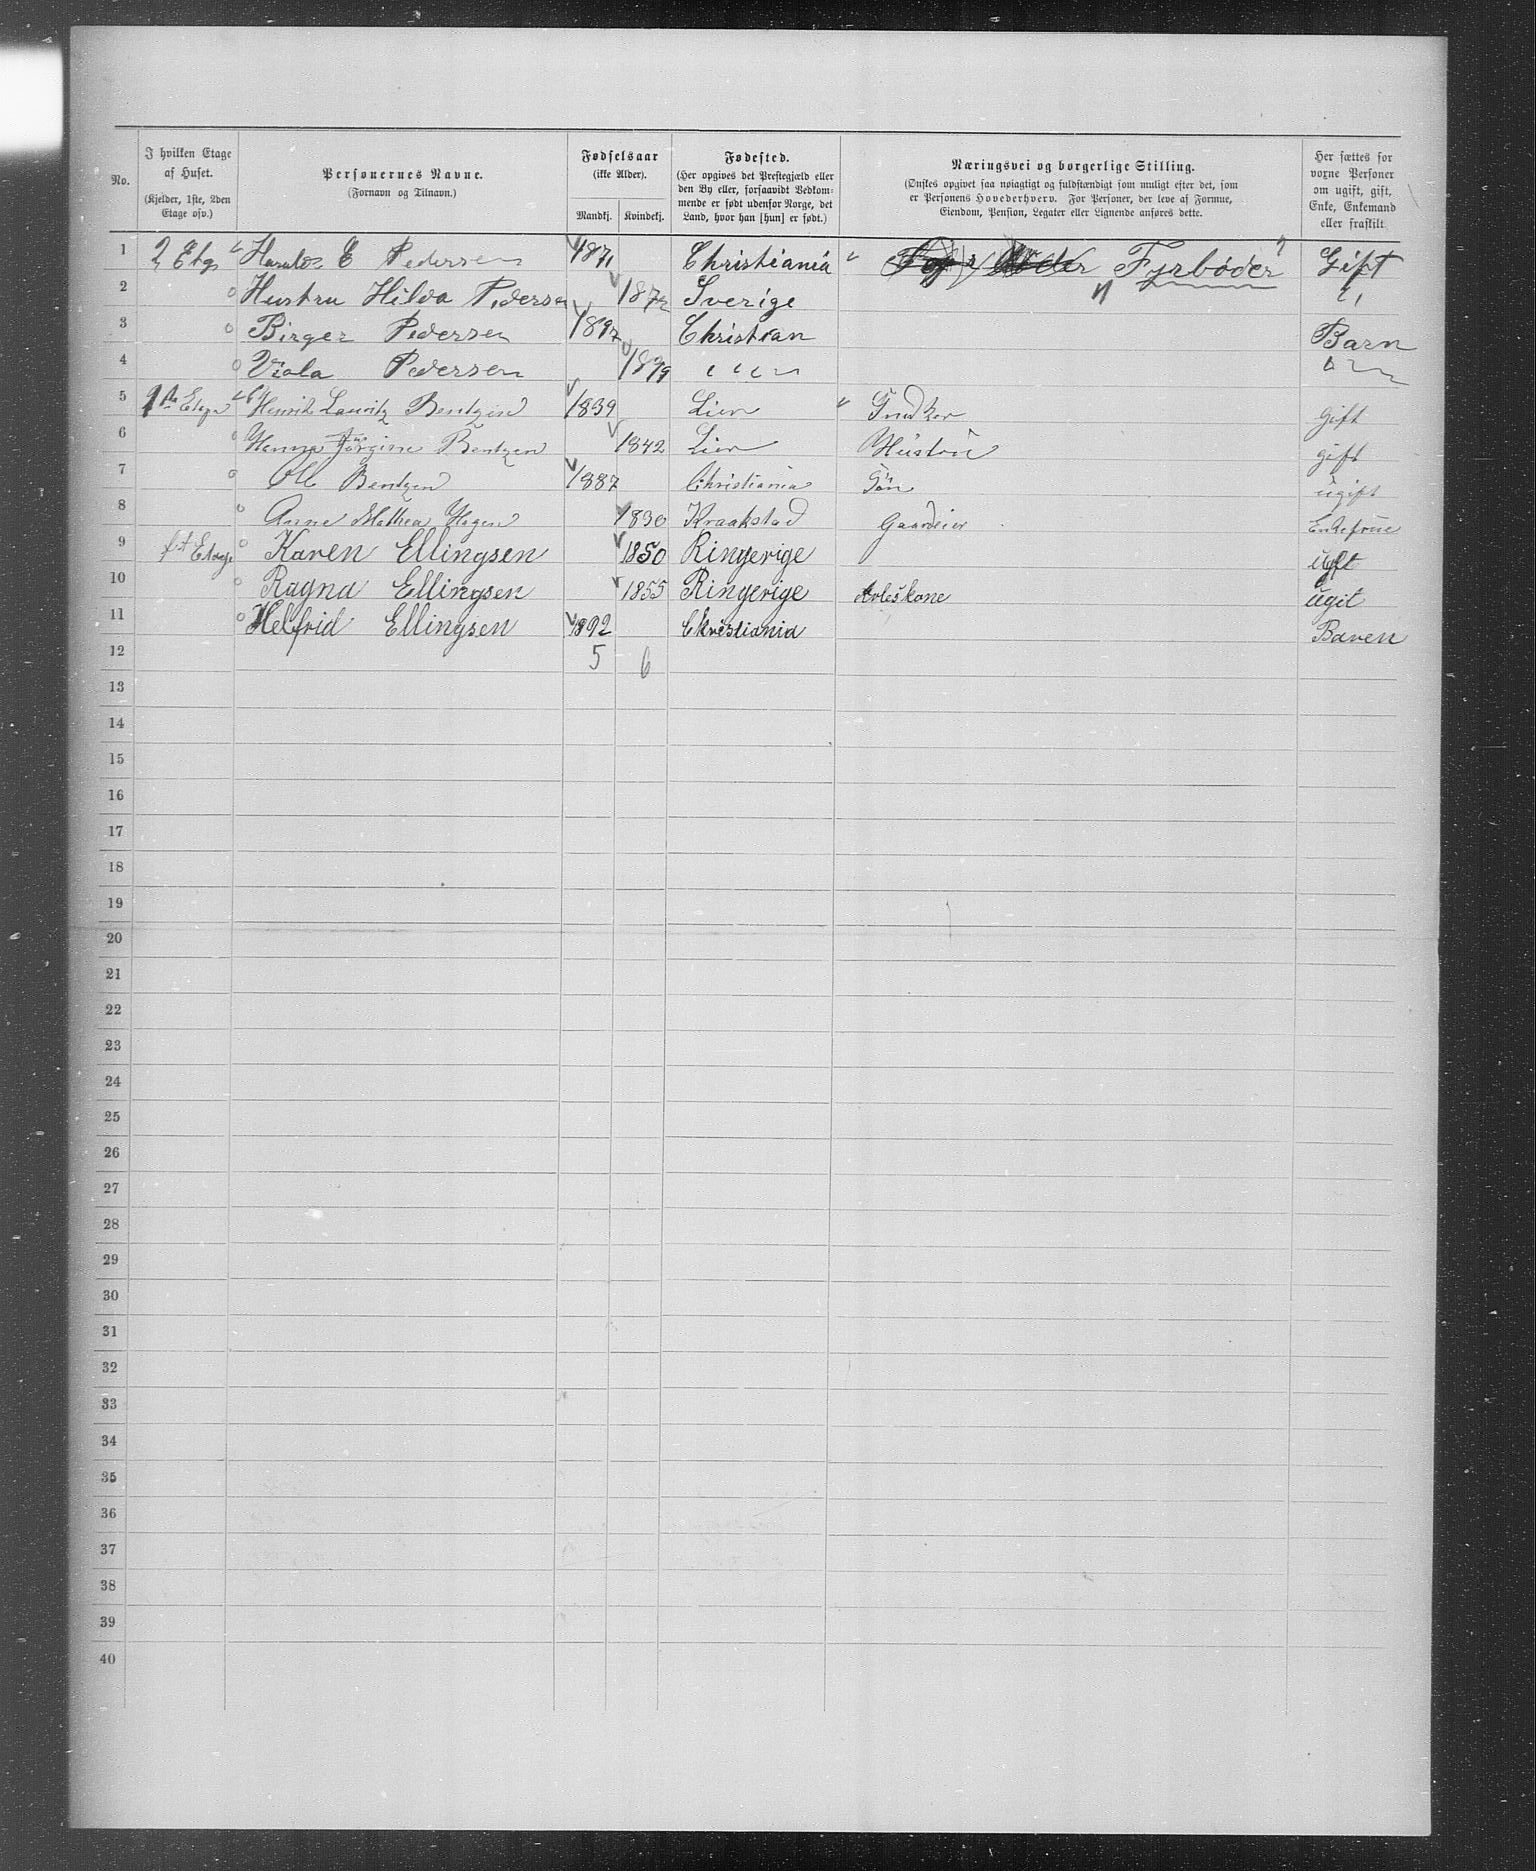 No.
I hvilken Etage af Huset. (Kjelder, 1ste, 2den Etage osv.)
Personernes Navne. (Fornavn og Tilnavn.)
Fødselsaar (ikke Alder). Mandkj. Kvindekj.
Fødested. (Her opgives det Prestegjæld eller den By eller, forsaavidt Vedkommende er født udenfor Norge, det Land, hvor han [hun] er født.)
Næringsvei og borgerlige Stilling. (Ønskes opgivet saa nøiagtigt og fuldstændigt som muligt efter det, som er Personens Hovederhverv. For Personer, der leve af Formue, Eiendom, Pension, Legater eller Lignende anføres dette.
Her sættes for voxne Personer om ugift, gift, Enke, Enkemand eller fraskilt
1 2 Etg Harald E Pedersen 1871 Christiania " Fyrbøder Gift
2 Hustru Hilda Pedersen 1872 Sverige "
3 Birger Pedersen 1897 Christian Barn
4 Viola Pedersen 1899 " " "
5 1ste Etage Henrik Lauritz Bentzen 1839 Lier " Gift
6 Hanna Jørgine Bentzen 1842 Lier Hustru gift
7 Bentzen 1887 Christiania Søn ugift
8 Anne Mathea Hagen 1830 Kraakstad Gaardeier Enkefrue
9 Etage Karen Ellingsen 1850 Ringerige ugift
10 Ragna Ellingsen 1855 Ringerige ugit
11 Helfrid Ellingsen 1892 Christiania Baren
12 5 6
13
14
15
16
17
18
19
20
21
22
23
24
25
26
27
28
29
30
31
32
33
34
35
36
37
38
39
40